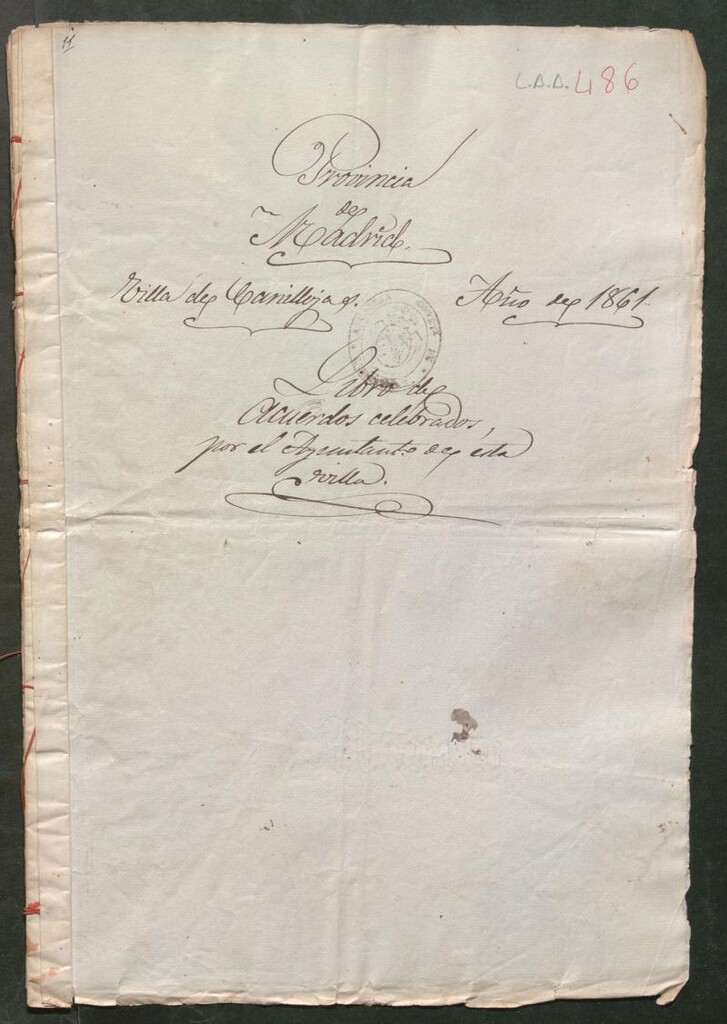 11
L.A.A. 486
Provincia
de
Madrid.
Villa de Canillejas. Año de 1861.
Libro de
Acuerdos celebrados,
por el Ayuntamto de esta
villa.